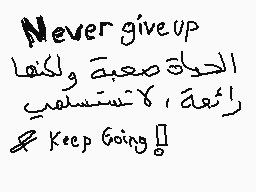 Never give up
الحياة صعبة ولكنها
رائعة ، لا تستسلمي
& Keep Going!